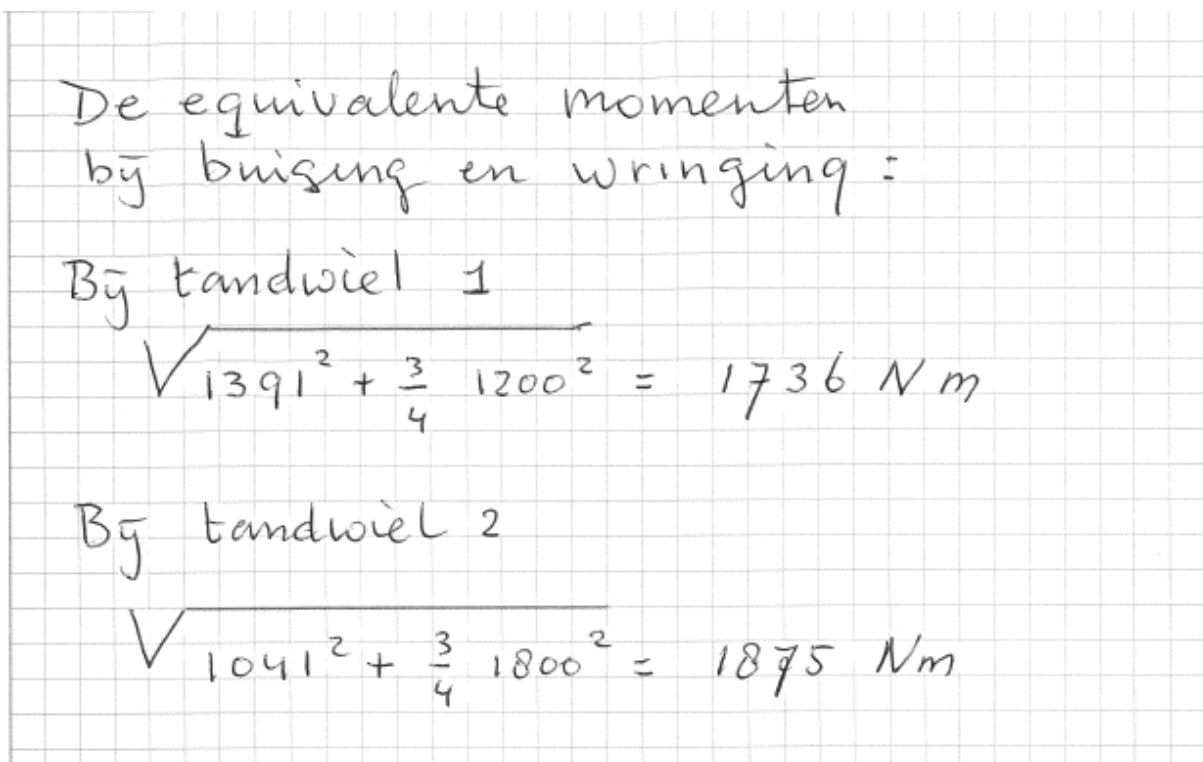 De equivalente momenten
bij buiging en wringing :
Bij tandwiel 1
√(1391² + 3/4 1200²) = 1736 Nm
Bij tandwiel 2
√(1041² + 3/4 1800²) = 1875 Nm